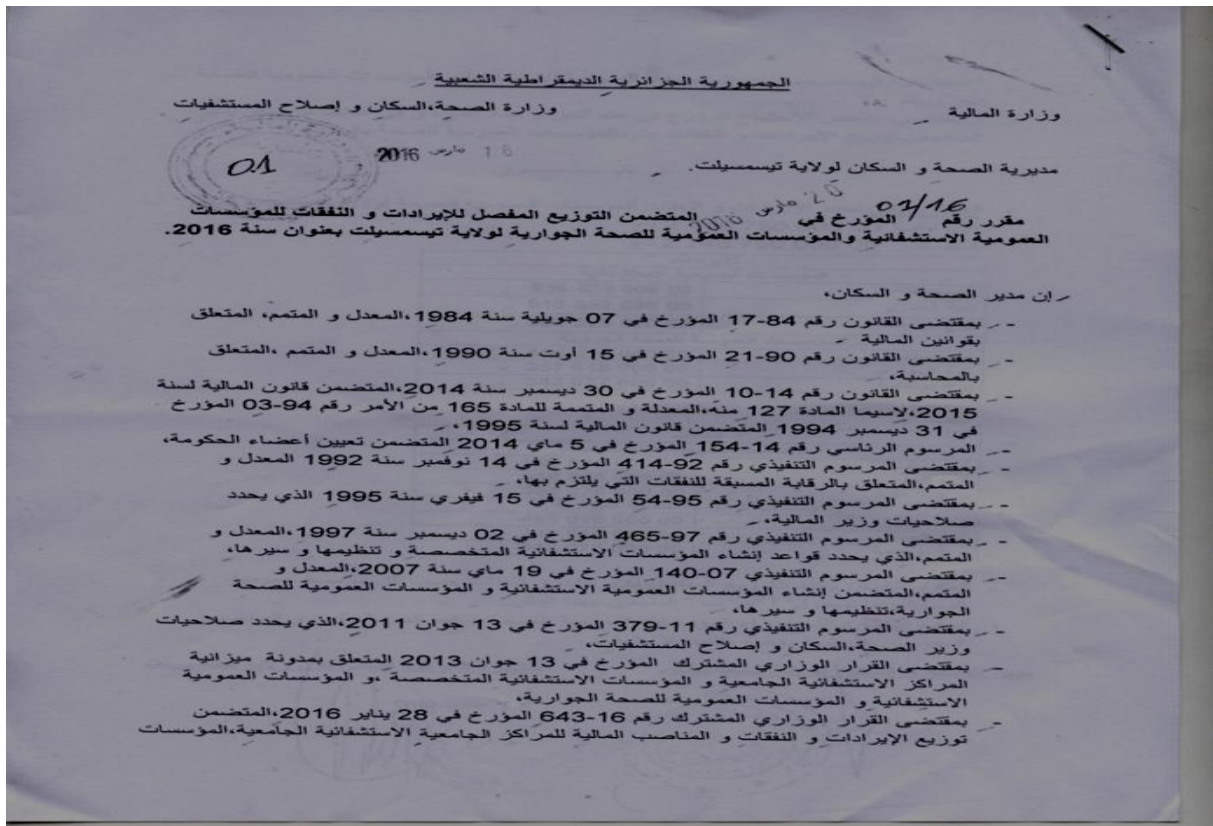 الجمهورية الجزائرية الديمقراطية الشعبية
وزارة المالية وزارة الصحة،السكان و إصلاح المستشفيات
01 16 مارس 2016
مديرية الصحة و السكان لولاية تيسمسيلت.
مقرر رقم 01/16 المؤرخ في 20 مارس 2016 المتضمن التوزيع المفصل للإيرادات و النفقات للمؤسسات
العمومية الاستشفائية والمؤسسات العمومية للصحة الجوارية لولاية تيسمسيلت بعنوان سنة 2016.
إن مدير الصحة و السكان،
- بمقتضى القانون رقم 84-17 المؤرخ في 07 جويلية سنة 1984،المعدل و المتمم، المتعلق
بقوانين المالية
- بمقتضى القانون رقم 90-21 المؤرخ في 15 أوت سنة 1990،المعدل و المتمم ،المتعلق
بالمحاسبة،
- بمقتضى القانون رقم 14-10 المؤرخ في 30 ديسمبر سنة 2014،المتضمن قانون المالية لسنة
2015،لاسيما المادة 127 منه،المعدلة و المتممة للمادة 165 من الأمر رقم 94-03 المؤرخ
في 31 ديسمبر 1994 المتضمن قانون المالية لسنة 1995،
- المرسوم الرئاسي رقم 14-154 المؤرخ في 5 ماي 2014 المتضمن تعيين أعضاء الحكومة،
- بمقتضى المرسوم التنفيذي رقم 92-414 المؤرخ في 14 نوفمبر سنة 1992 المعدل و
المتمم،المتعلق بالرقابة المسبقة للنفقات التي يلتزم بها،
- بمقتضى المرسوم التنفيذي رقم 95-54 المؤرخ في 15 فيفري سنة 1995 الذي يحدد
صلاحيات وزير المالية،
- بمقتضى المرسوم التنفيذي رقم 97-465 المؤرخ في 02 ديسمبر سنة 1997،المعدل و
المتمم،الذي يحدد قواعد إنشاء المؤسسات الاستشفائية المتخصصة و تنظيمها و سيرها،
- بمقتضى المرسوم التنفيذي 07-140 المؤرخ في 19 ماي سنة 2007،المعدل و
المتمم،المتضمن إنشاء المؤسسات العمومية الاستشفائية و المؤسسات العمومية للصحة
الجوارية،تنظيمها و سيرها،
- بمقتضى المرسوم التنفيذي رقم 11-379 المؤرخ في 13 جوان 2011،الذي يحدد صلاحيات
وزير الصحة،السكان و إصلاح المستشفيات،
- بمقتضى القرار الوزاري المشترك المؤرخ في 13 جوان 2013 المتعلق بمدونة ميزانية
المراكز الاستشفائية الجامعية و المؤسسات الاستشفائية المتخصصة ،و المؤسسات العمومية
الاستشفائية و المؤسسات العمومية للصحة الجوارية،
- بمقتضى القرار الوزاري المشترك رقم 16-643 المؤرخ في 28 يناير 2016،المتضمن
توزيع الإيرادات و النفقات و المناصب المالية للمراكز الجامعية الاستشفائية الجامعية،المؤسسات